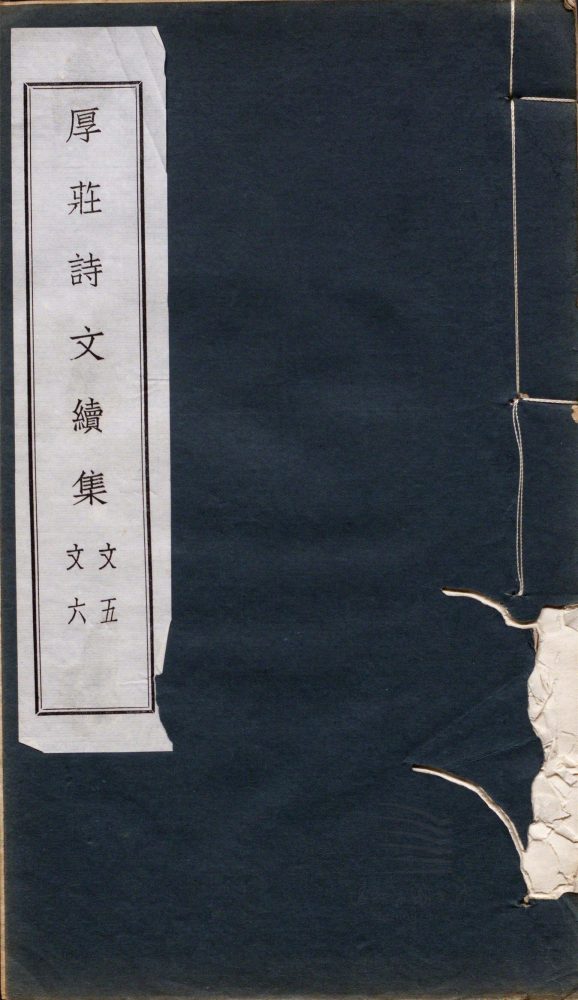 厚莊詩文續集
文五
文六